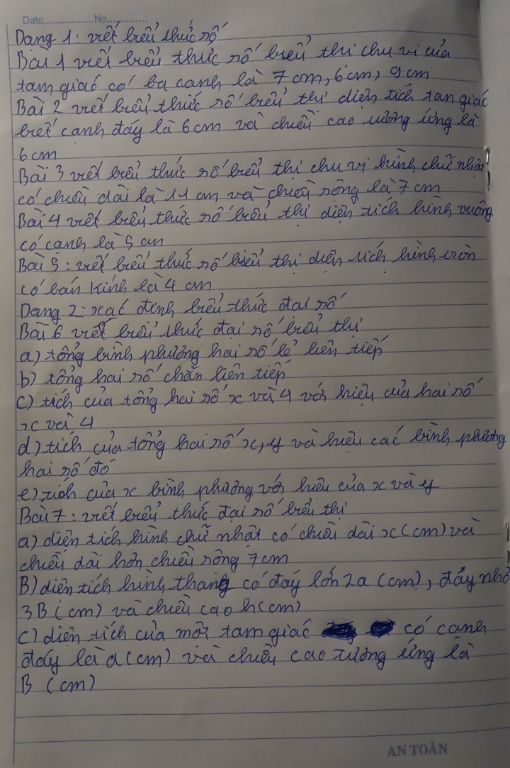 Date............No............
Dạng 1: viết biểu thức số
Bài 1 viết biểu thức số biểu thị chu vi của
tam giác có ba cạnh là 7 cm, 6 cm, 9 cm
Bài 2 viết biểu thức số biểu thị diện tích tam giác
biết cạnh đáy là 6 cm và chiều cao tương ứng là
6 cm
Bài 3 viết biểu thức số biểu thị chu vi hình chữ nhật
có chiều dài là 11 cm và chiều rông là 7 cm
Bài 4 viết biểu thức số biểu thị diện tích hình vuông
có cạnh là 5 cm
Bài 5: viết biểu thức số biểu thị diện tích hình tròn
có bán kính là 4 cm
Dạng 2: xác định biểu thức đại số
Bài 6 viết biểu thức đại số biểu thị
a) tổng bình phương hai số lẻ liên tiếp
b) tổng hai số chẵn liên tiếp
c) tích của tổng hai số x và 4 với hiệu của hai số
x và 4
d) tích của tổng hai số x, y và hiệu các bình phương
hai số đó
e) tích của x bình phương với hiệu của x và y
Bài 7: viết biểu thức đại số biểu thị
a) diện tích hình chữ nhật có chiều dài x (cm) và
chiều dài hơn chiều rông 7 cm
B) diện tích hình thang có đáy lớn 2a (cm), đáy nhỏ
3B (cm) và chiều cao h (cm)
c) diện tích của một tam giác có cạnh
đáy là a (cm) và chiều cao tương ứng là
B (cm)
AN TOÀN